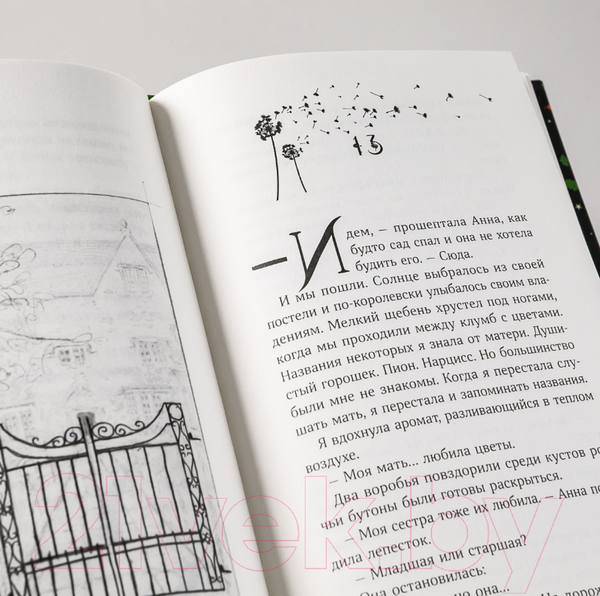 13
— Идем, — прошептала Анна, как
будто сад спал и она не хотела
будить его. — Сюда.
И мы пошли. Солнце выбралось из своей
постели и по-королевски улыбалось своим вла-
дениям. Мелкий щебень хрустел под ногами,
когда мы проходили между клумб с цветами.
Названия некоторых я знала от матери. Души-
стый горошек. Пион. Нарцисс. Но большинство
были мне не знакомы. Когда я перестала слу-
шать мать, я перестала и запоминать названия.
Я вдохнула аромат, разливающийся в теплом
воздухе.
— Моя мать... любила цветы.
Два воробья повздорили среди кустов ро
чьи бутоны были готовы раскрыться.
— Моя сестра тоже их любила — Анна по
дила лепесток.
— Младшая или старшая?
Она остановилась:
но она...
21vek.by